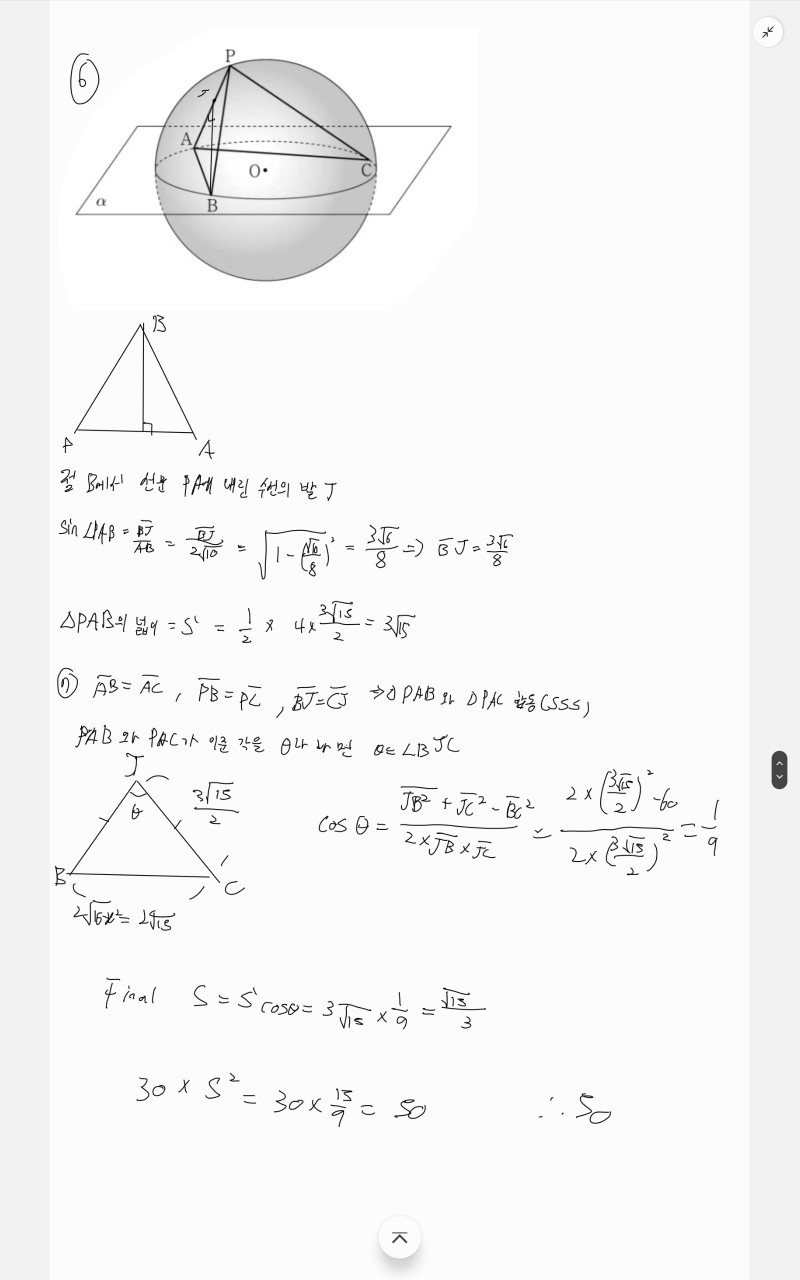 ⑥
P
J
A
O
C
B
α
B
P
A
점 B에서 선분 PA에 내린 수선의 발 J
sin∠PAB = BJ/AB = BJ/2√10 = √(1-(√10/8)²) = 3√6/8 ⇒ BJ = 3√6/8
△PAB의 넓이 = S' = 1/2 × 4 × 3√15/2 = 3√15
AB = AC, PB = PC, BJ = CJ ⇒ △PAB 와 △PAC 합동(SSS)
PAB 와 PAC가 이룬 각을 θ라 하면 θ = ∠BJC
J
θ
3√15/2
B
C
cosθ = (JB² + JC² - BC²)/(2×JB×JC) = (2×(3√15/2)² - 60)/(2×(3√15/2)²) = 1/9
= 2√15
Final S = S' cosθ = 3√15 × 1/9 = √15/3
30 × S² = 30 × 15/9 = 50 ∴ 50